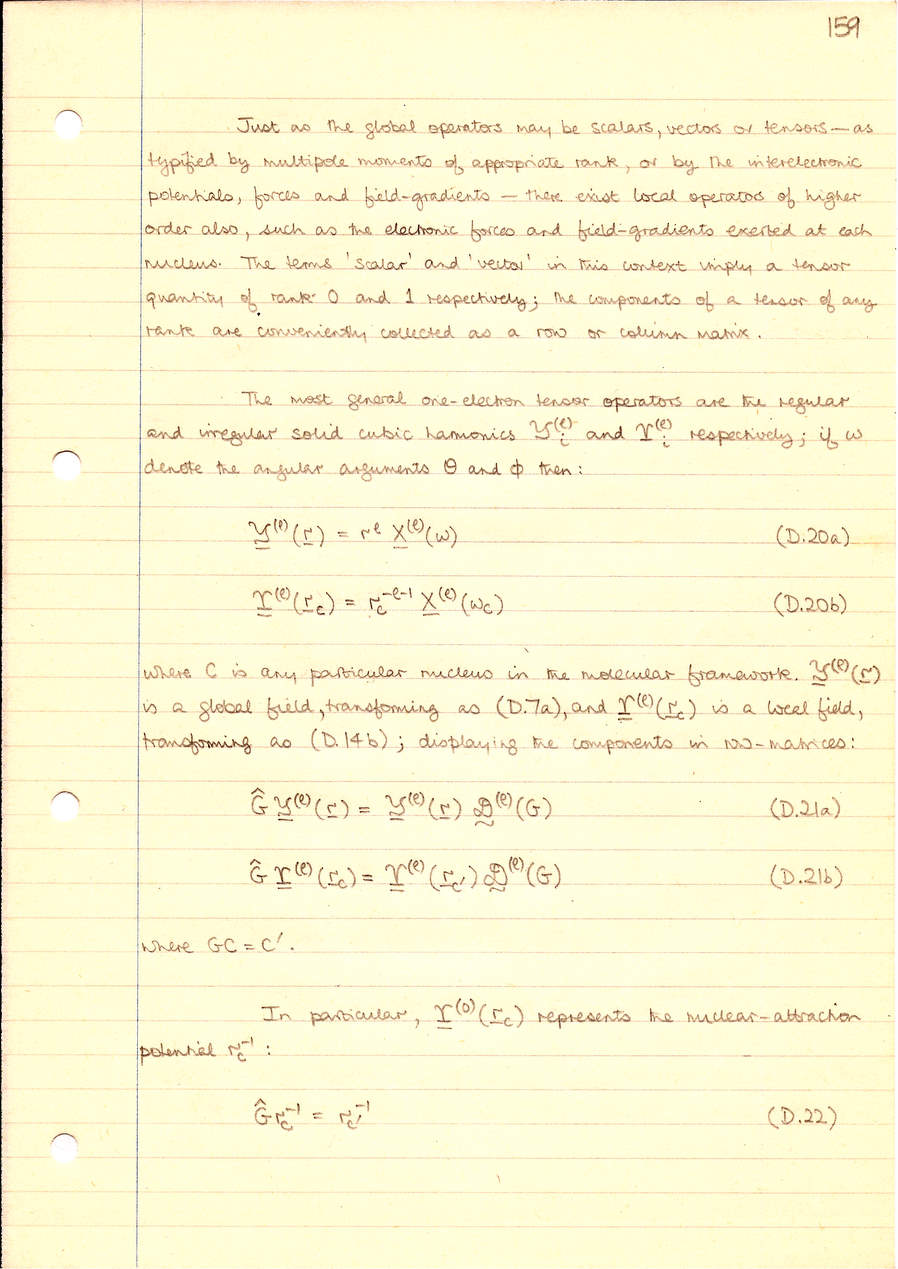 159
Just as the global operators may be scalars, vectors or tensors — as
typified by multipole moments of appropriate rank, or by the interelectronic
potentials, forces and field-gradients — there exist local operators of higher
order also, such as the electronic forces and field-gradients exerted at each
nucleus. The terms 'scalar' and 'vector' in this context imply a tensor
quantity of rank 0 and 1 respectively; the components of a tensor of any
rank are conveniently collected as a row or column matrix.
The most general one-electron tensor operators are the regular
and irregular solid cubic harmonics 𝒴ᵢ⁽ˡ⁾ and ϒᵢ⁽ˡ⁾ respectively; if ω
denote the angular arguments θ and φ then:
𝒴̲⁽ˡ⁾(r̲) = rˡ X̲⁽ˡ⁾(ω) (D.20a)
ϒ̲⁽ˡ⁾(r̲_C) = r_C⁻ˡ⁻¹ X̲⁽ˡ⁾(ω_C) (D.20b)
where C is any particular nucleus in the molecular framework. 𝒴̲⁽ˡ⁾(r̲)
is a global field, transforming as (D.7a), and ϒ̲⁽ˡ⁾(r̲_C) is a local field,
transforming as (D.14b); displaying the components in row-matrices:
Ĝ 𝒴̲⁽ˡ⁾(r̲) = 𝒴̲⁽ˡ⁾(r̲) 𝒟̰⁽ˡ⁾(G) (D.21a)
Ĝ ϒ̲⁽ˡ⁾(r̲_C) = ϒ̲⁽ˡ⁾(r̲_C′) 𝒟̰⁽ˡ⁾(G) (D.21b)
where GC = C′.
In particular, ϒ̲⁽⁰⁾(r̲_C) represents the nuclear-attraction
potential r_C⁻¹ :
Ĝ r_C⁻¹ = r_C′⁻¹ (D.22)